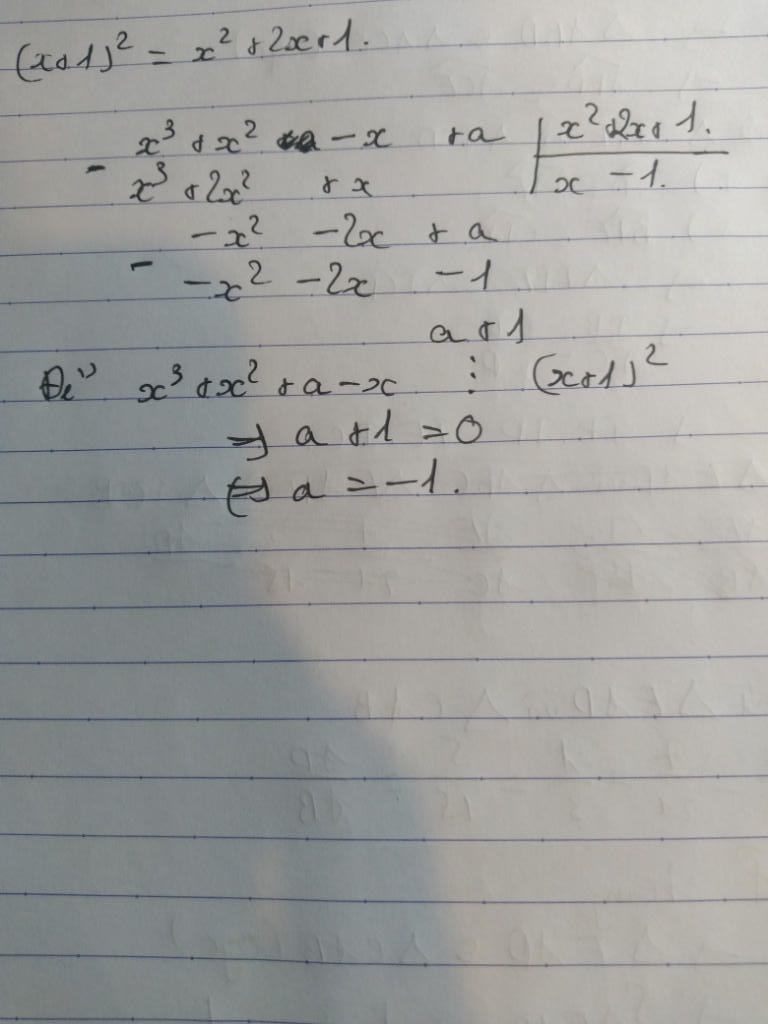 (x+1)² = x² + 2x + 1.
x³ + x² - x + a | x² + 2x + 1.
- x³ + 2x² + x | x - 1.
-x² - 2x + a
- -x² - 2x - 1
a + 1
Để x³ + x² + a - x ⋮ (x+1)²
=> a + 1 = 0
<=> a = -1.